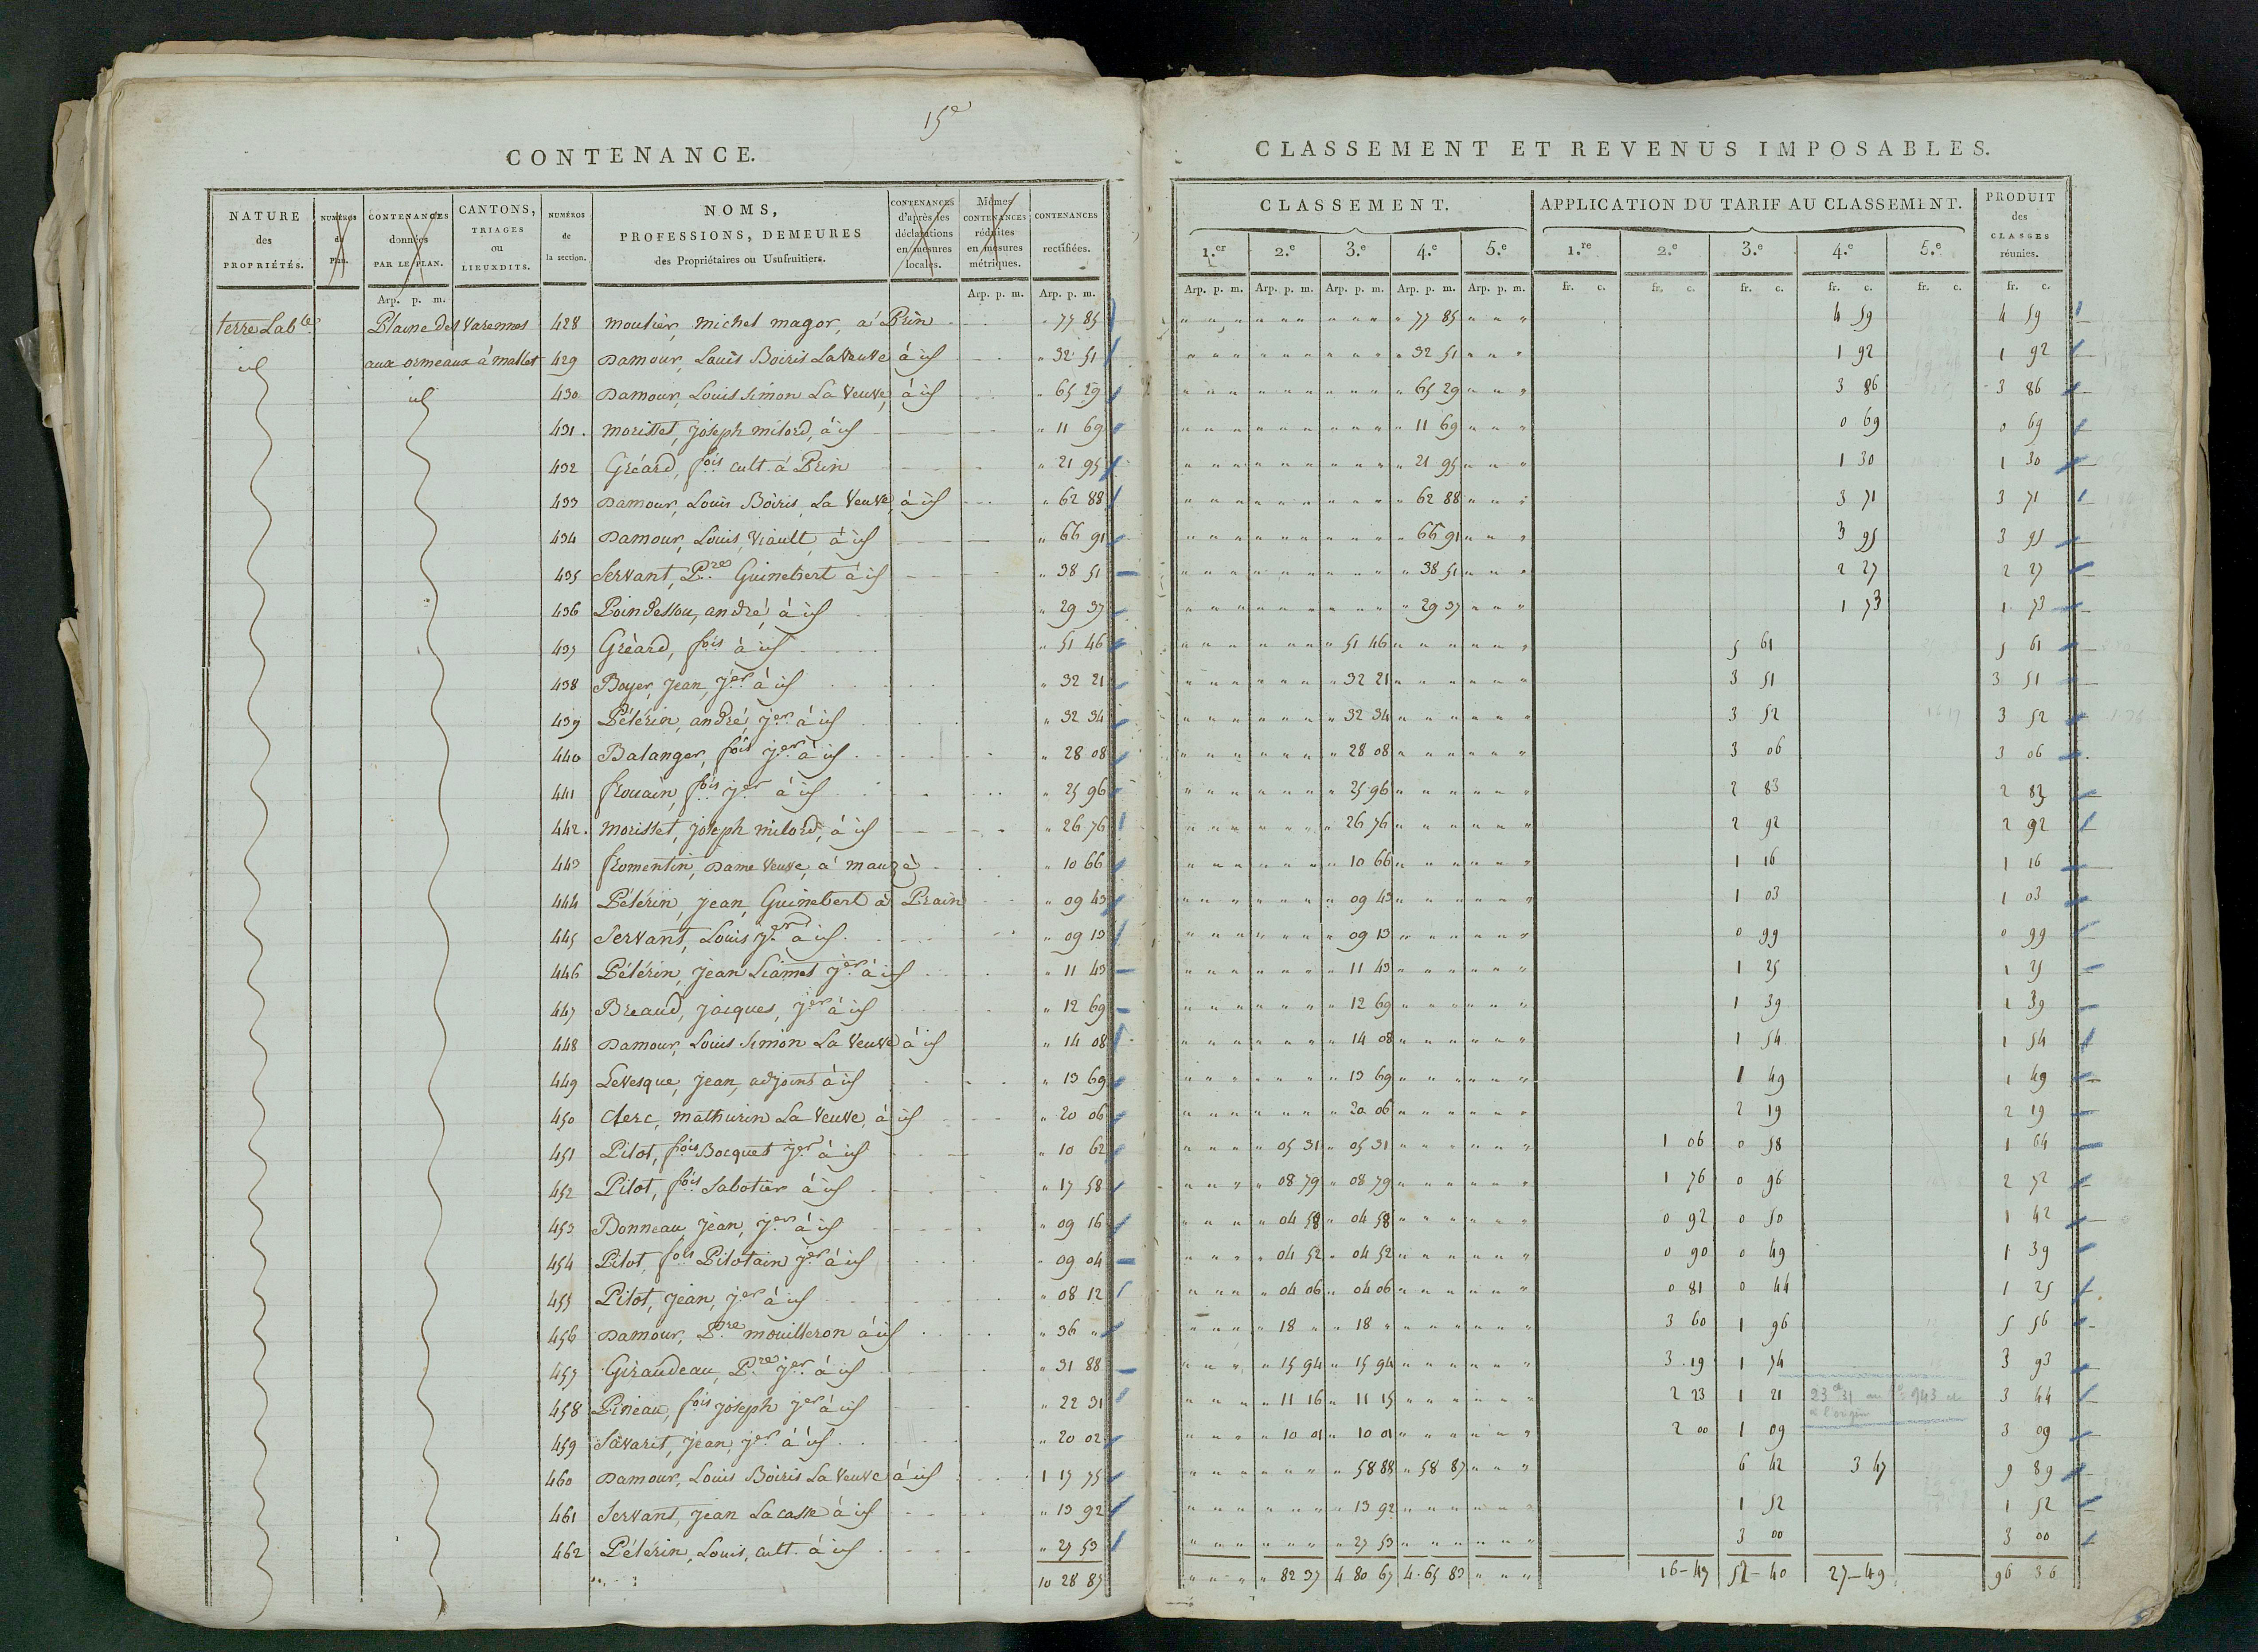 15e
CONTENANCE.
NATURE des PROPRIÉTÉS. | NUMÉROS du Plan. | CONTENANCES données PAR LE PLAN. | CANTONS, TRIAGES ou LIEUXDITS. | NUMÉROS de la section. | NOMS, PROFESSIONS, DEMEURES des Propriétaires ou Usufruitiers. | CONTENANCES d'après les déclarations en mesures locales. | Mêmes CONTENANCES réduites en mesures métriques. | CONTENANCES rectifiées.
Arp. p. m. | Arp. p. m. | Arp. p. m.
terre Lable | Plaine des Varennes | 428 | moutier, michel magor, á Prin | " 77 85
id | aux ormeaux á mallet | 429 | Damour, Louis Boiris La Veuve á id | " 32 51
id | 430 | Damour, Louis Simon La Veuve, á id | " 65 29
431 . | morisset, joseph milord, á id | " 11 69
432 | Gréard, fois cult. á Prin | " 21 95
433 | Damour, Louis Boiris, La Veuve á id | " 62 88
434 | Damour, Louis, Viault, á id | " 66 91
435 | Servant, Pre Guinebert á id | " 38 51
436 | Poindessou, andré, á id | " 29 37
437 | Gréard, fois á id | " 51 46
438 | Boyer, jean, jer á id | " 32 21
439 | Pélérin, andré, jer á id | " 32 34
440 | Balanger, fois jer á id | " 28 08
441 | frouain, fois jer á id | " 25 96
442 . | morisset, joseph milord, á id | " 26 76
443 | fromentin, Dame Veuve, á mauzé | " 10 66
444 | Pélérin, jean Guinebert á Prain | " 09 43
445 | Servant, Louis jer á id | " 09 13
446 | Pélérin, jean Liamet jer á id | " 11 43
447 | Breaud, jacques, jer á id | " 12 69
448 | Damour, Louis Simon La Veuve á id | " 14 08
449 | Levesque, jean, adjoint á id | " 13 69
450 | Clerc, mathurin La Veuve, á id | " 20 06
451 | Pilot, fois Bocquet jer á id | " 10 62
452 | Pilot, fois Sabotier á id | " 17 58
453 | Bonneau, jean, jer á id | " 09 16
454 | Pilot, fois Pilotain jer á id | " 09 04
455 | Pilot, jean, jer á id | " 08 12
456 | Damour, Pre mouilleron á id | " 36 "
457 | Giraudeau, Pre jer á id | " 31 88
458 | Pineau, fois joseph jer á id | " 22 31
459 | Savarit, jean, jer á id | " 20 02
460 | Damour, Louis Boiris La Veuve á id | 1 17 75
461 | Servant, jean Lacasse á id | " 13 92
462 | Pélérin, Louis, cult. á id | " 27 53
10 28 87
CLASSEMENT ET REVENUS IMPOSABLES.
CLASSEMENT. | APPLICATION DU TARIF AU CLASSEMENT. | PRODUIT des CLASSES réunies.
1.er | 2.e | 3.e | 4.e | 5.e | 1.re | 2.e | 3.e | 4.e | 5.e
Arp. p. m. | Arp. p. m. | Arp. p. m. | Arp. p. m. | Arp. p. m. | fr. c. | fr. c. | fr. c. | fr. c. | fr. c. | fr. c.
" 77 85 | 4 59 | 4 59
" 32 51 | 1 92 | 1 92
" 65 29 | 3 86 | 3 86
" 11 69 | 0 69 | 0 69
" 21 95 | 1 30 | 1 30
" 62 88 | 3 71 | 3 71
" 66 91 | 3 95 | 3 95
" 38 51 | 2 27 | 2 27
" 29 37 | 1 73 | 1 73
" 51 46 | 5 61 | 5 61
" 32 21 | 3 51 | 3 51
" 32 34 | 3 52 | 3 52
" 28 08 | 3 06 | 3 06
" 25 96 | 2 83 | 2 83
" 26 76 | 2 92 | 2 92
" 10 66 | 1 16 | 1 16
" 09 43 | 1 03 | 1 03
" 09 13 | 0 99 | 0 99
" 11 43 | 1 25 | 1 25
" 12 69 | 1 39 | 1 39
" 14 08 | 1 54 | 1 54
" 13 69 | 1 49 | 1 49
" 20 06 | 2 19 | 2 19
" 05 31 | " 05 31 | 1 06 | 0 58 | 1 64
" 08 79 | " 08 79 | 1 76 | 0 96 | 2 72
" 04 58 | " 04 58 | 0 92 | 0 50 | 1 42
" 04 52 | " 04 52 | 0 90 | 0 49 | 1 39
" 04 06 | " 04 06 | 0 81 | 0 44 | 1 25
" 18 " | " 18 " | 3 60 | 1 96 | 5 56
" 15 94 | " 15 94 | 3 19 | 1 74 | 3 93
" 11 16 | " 11 15 | 2 23 | 1 21 | 23 31 au 943 | 3 44
à l'origin
" 10 01 | " 10 01 | 2 00 | 1 09 | 3 09
" 58 88 | " 58 87 | 6 42 | 3 47 | 9 89
" 13 92 | 1 52 | 1 52
" 27 53 | 3 00 | 3 00
" 82 37 | 4 80 67 | 4 65 83 | 16-47 | 52-40 | 27-49 | 96 36